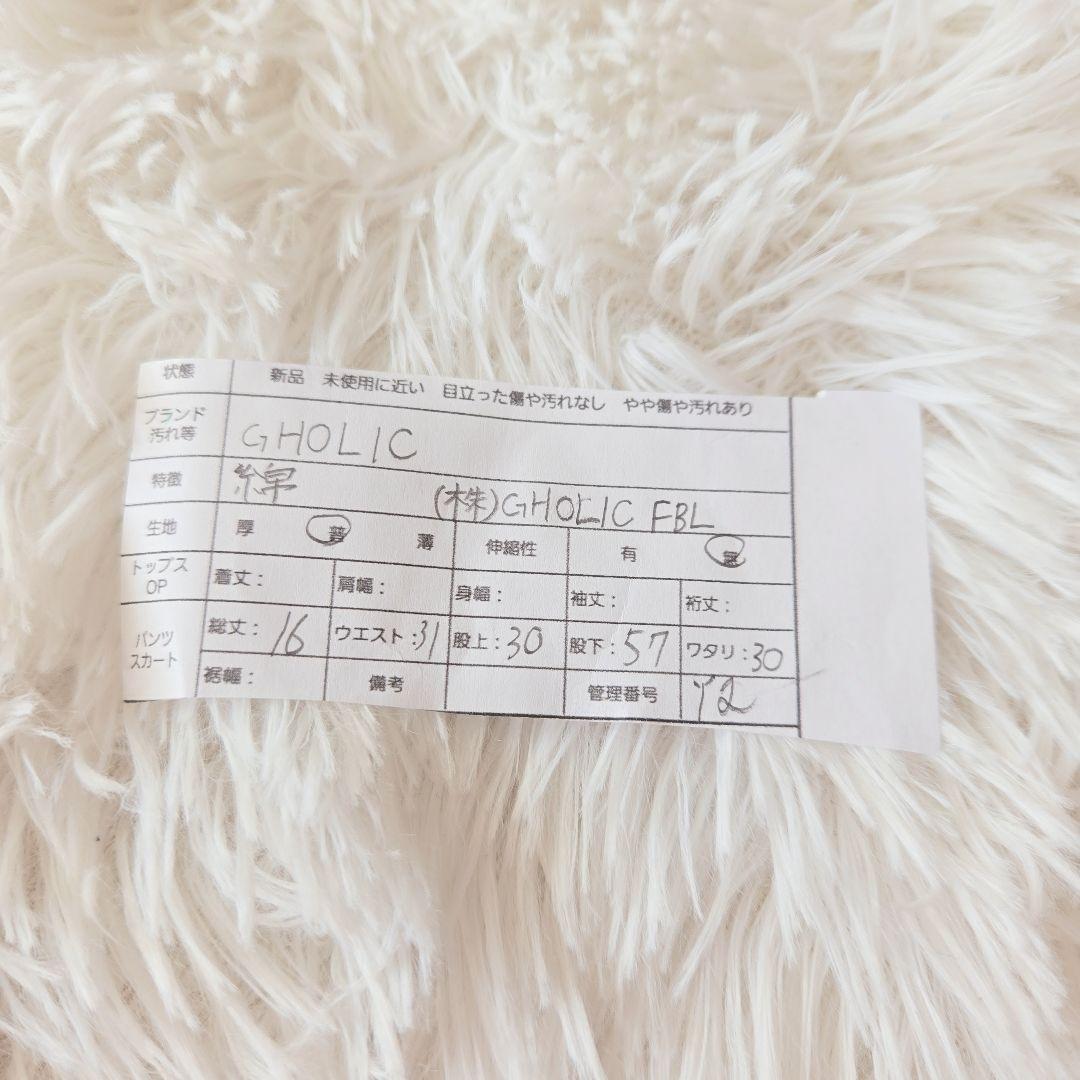 状態 新品 未使用に近い 目立った傷や汚れなし やや傷や汚れあり
ブランド
汚れ等 GHOLIC
特徴 綿 (株)GHOLIC FBL
生地 厚 普 薄 伸縮性 有 無
トップス
OP 着丈: 肩幅: 身幅: 袖丈: 裄丈:
パンツ
スカート 総丈:16 ウエスト:31 股上:30 股下:57 ワタリ:30
裾幅: 備考 管理番号 Y2